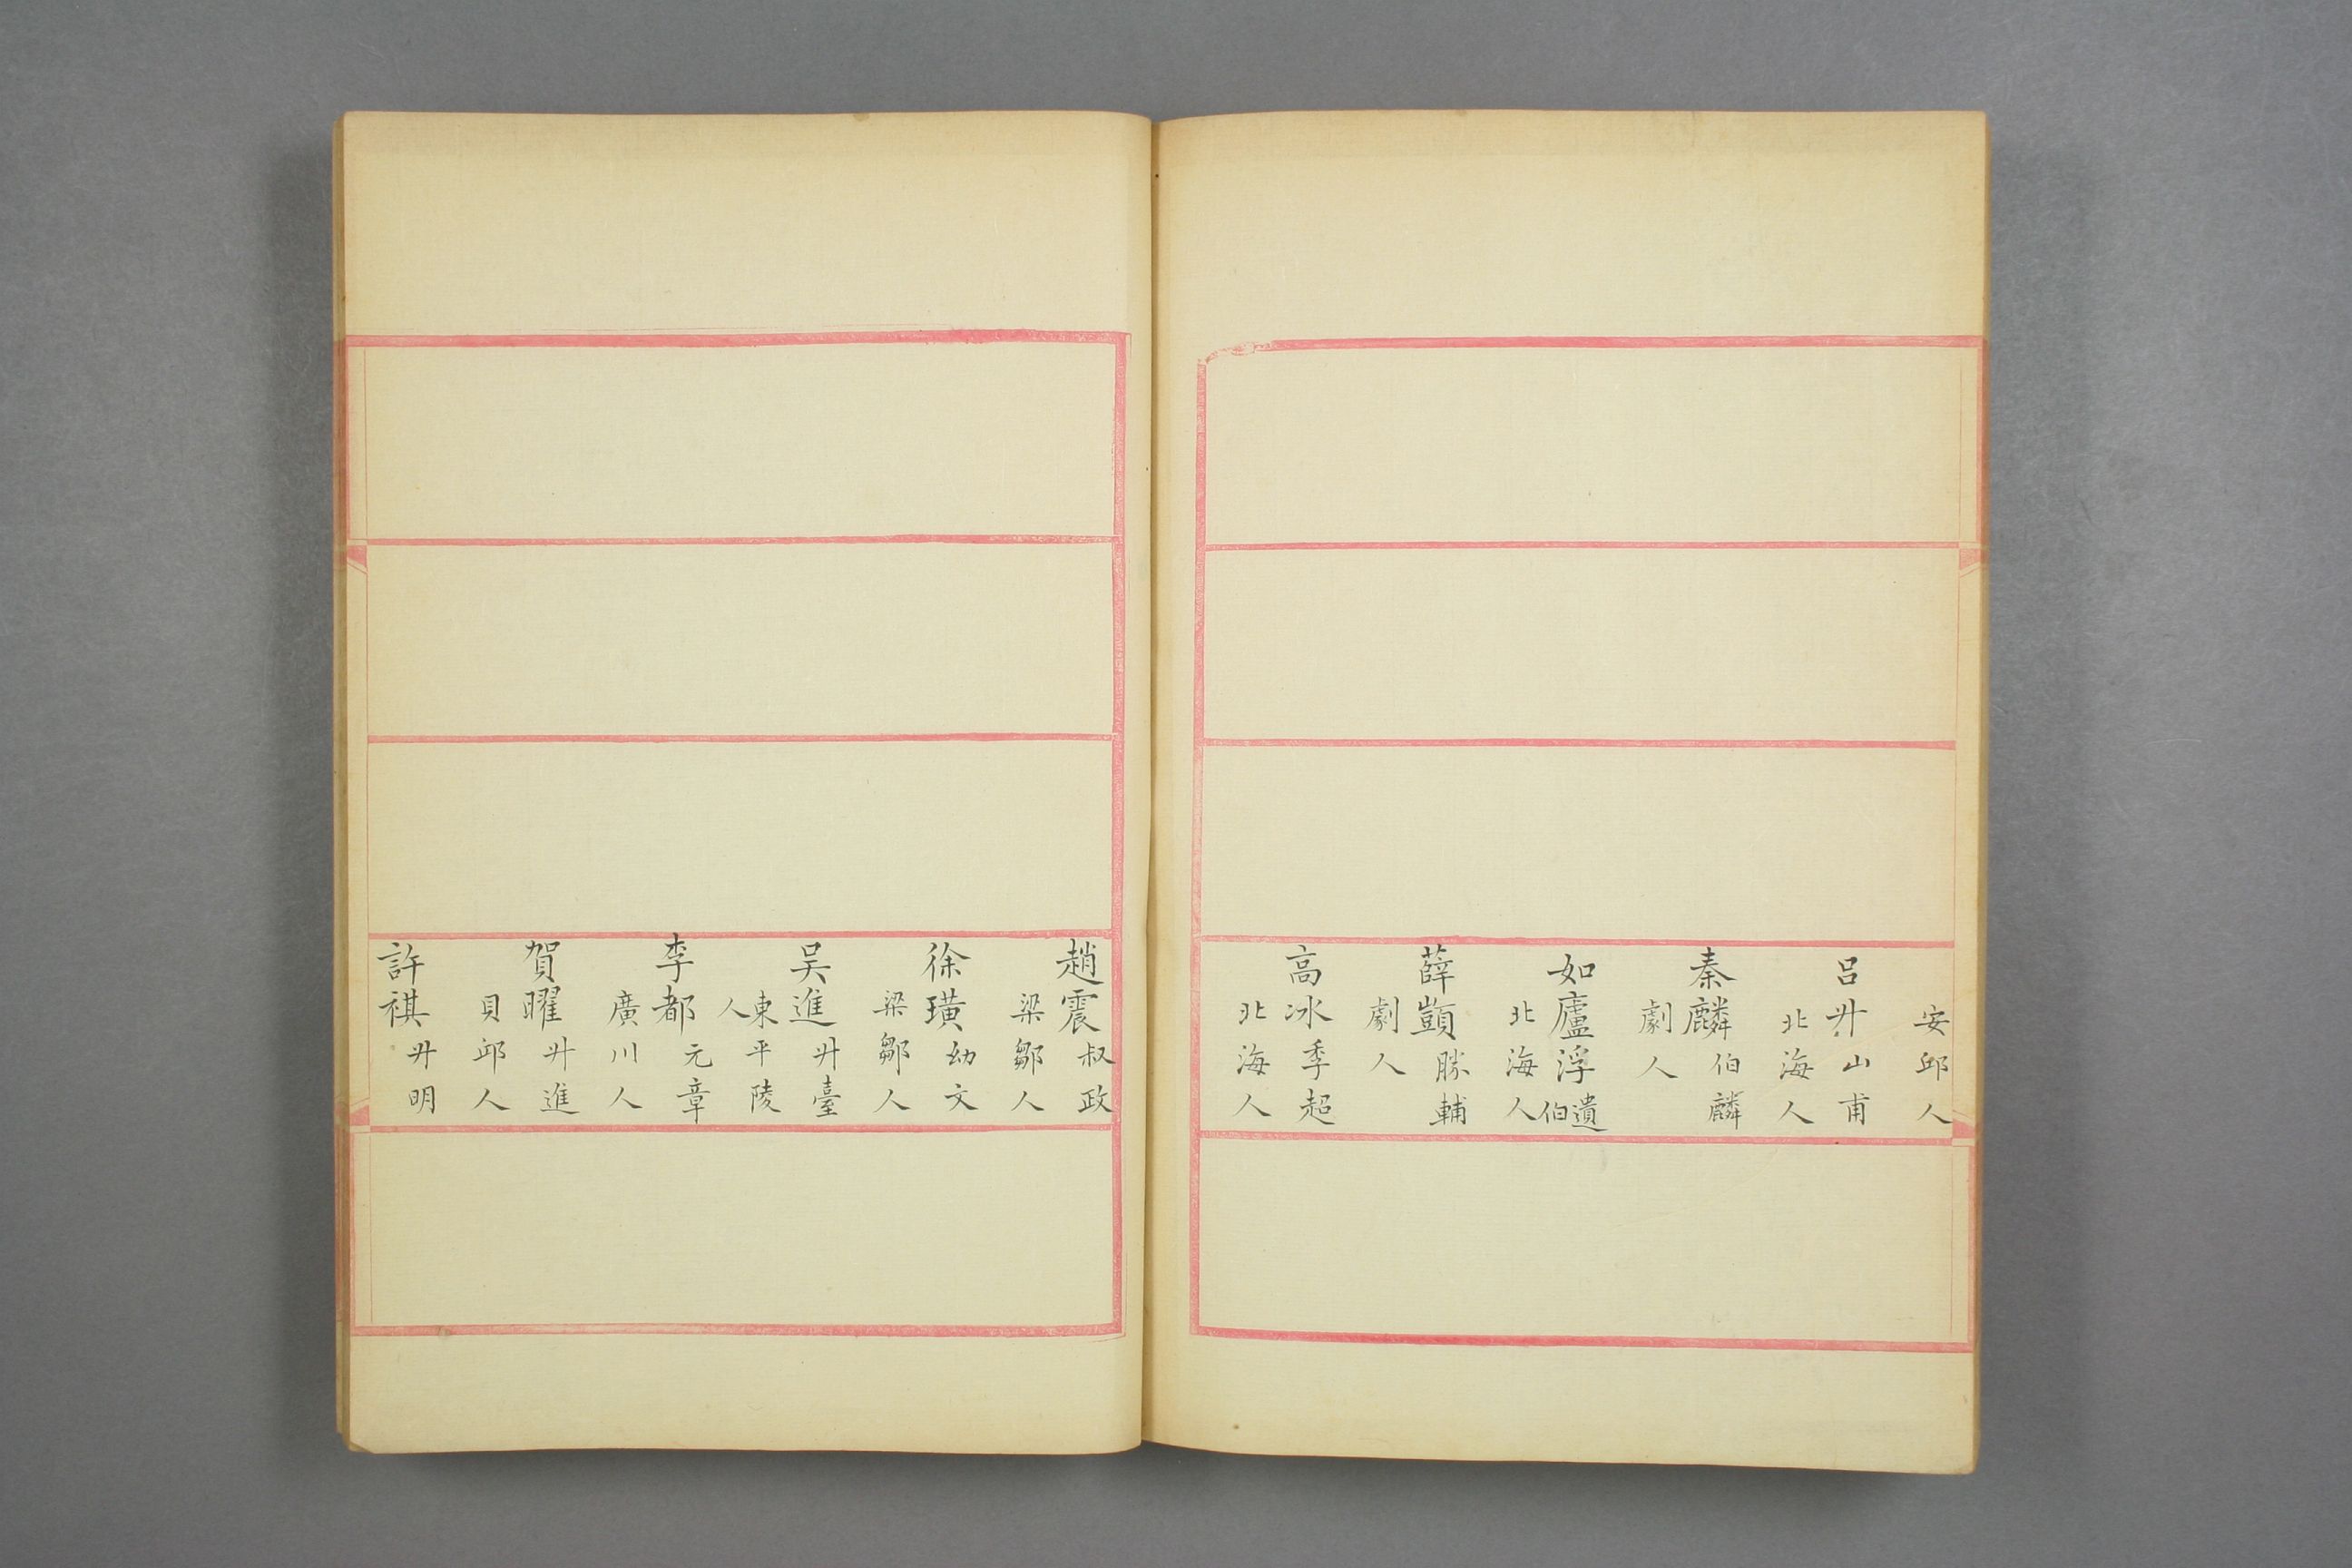 安邱人
呂升山甫
北海人
秦麟伯麟
劇人
如廬浮遺伯
北海人
薛顗勝輔
劇人
高冰季超
北海人
趙震叔政
梁鄒人
徐璜幼文
梁鄒人
吴進升臺
東平陵人
李都元章
廣川人
賀曜升進
貝邱人
許祺升明